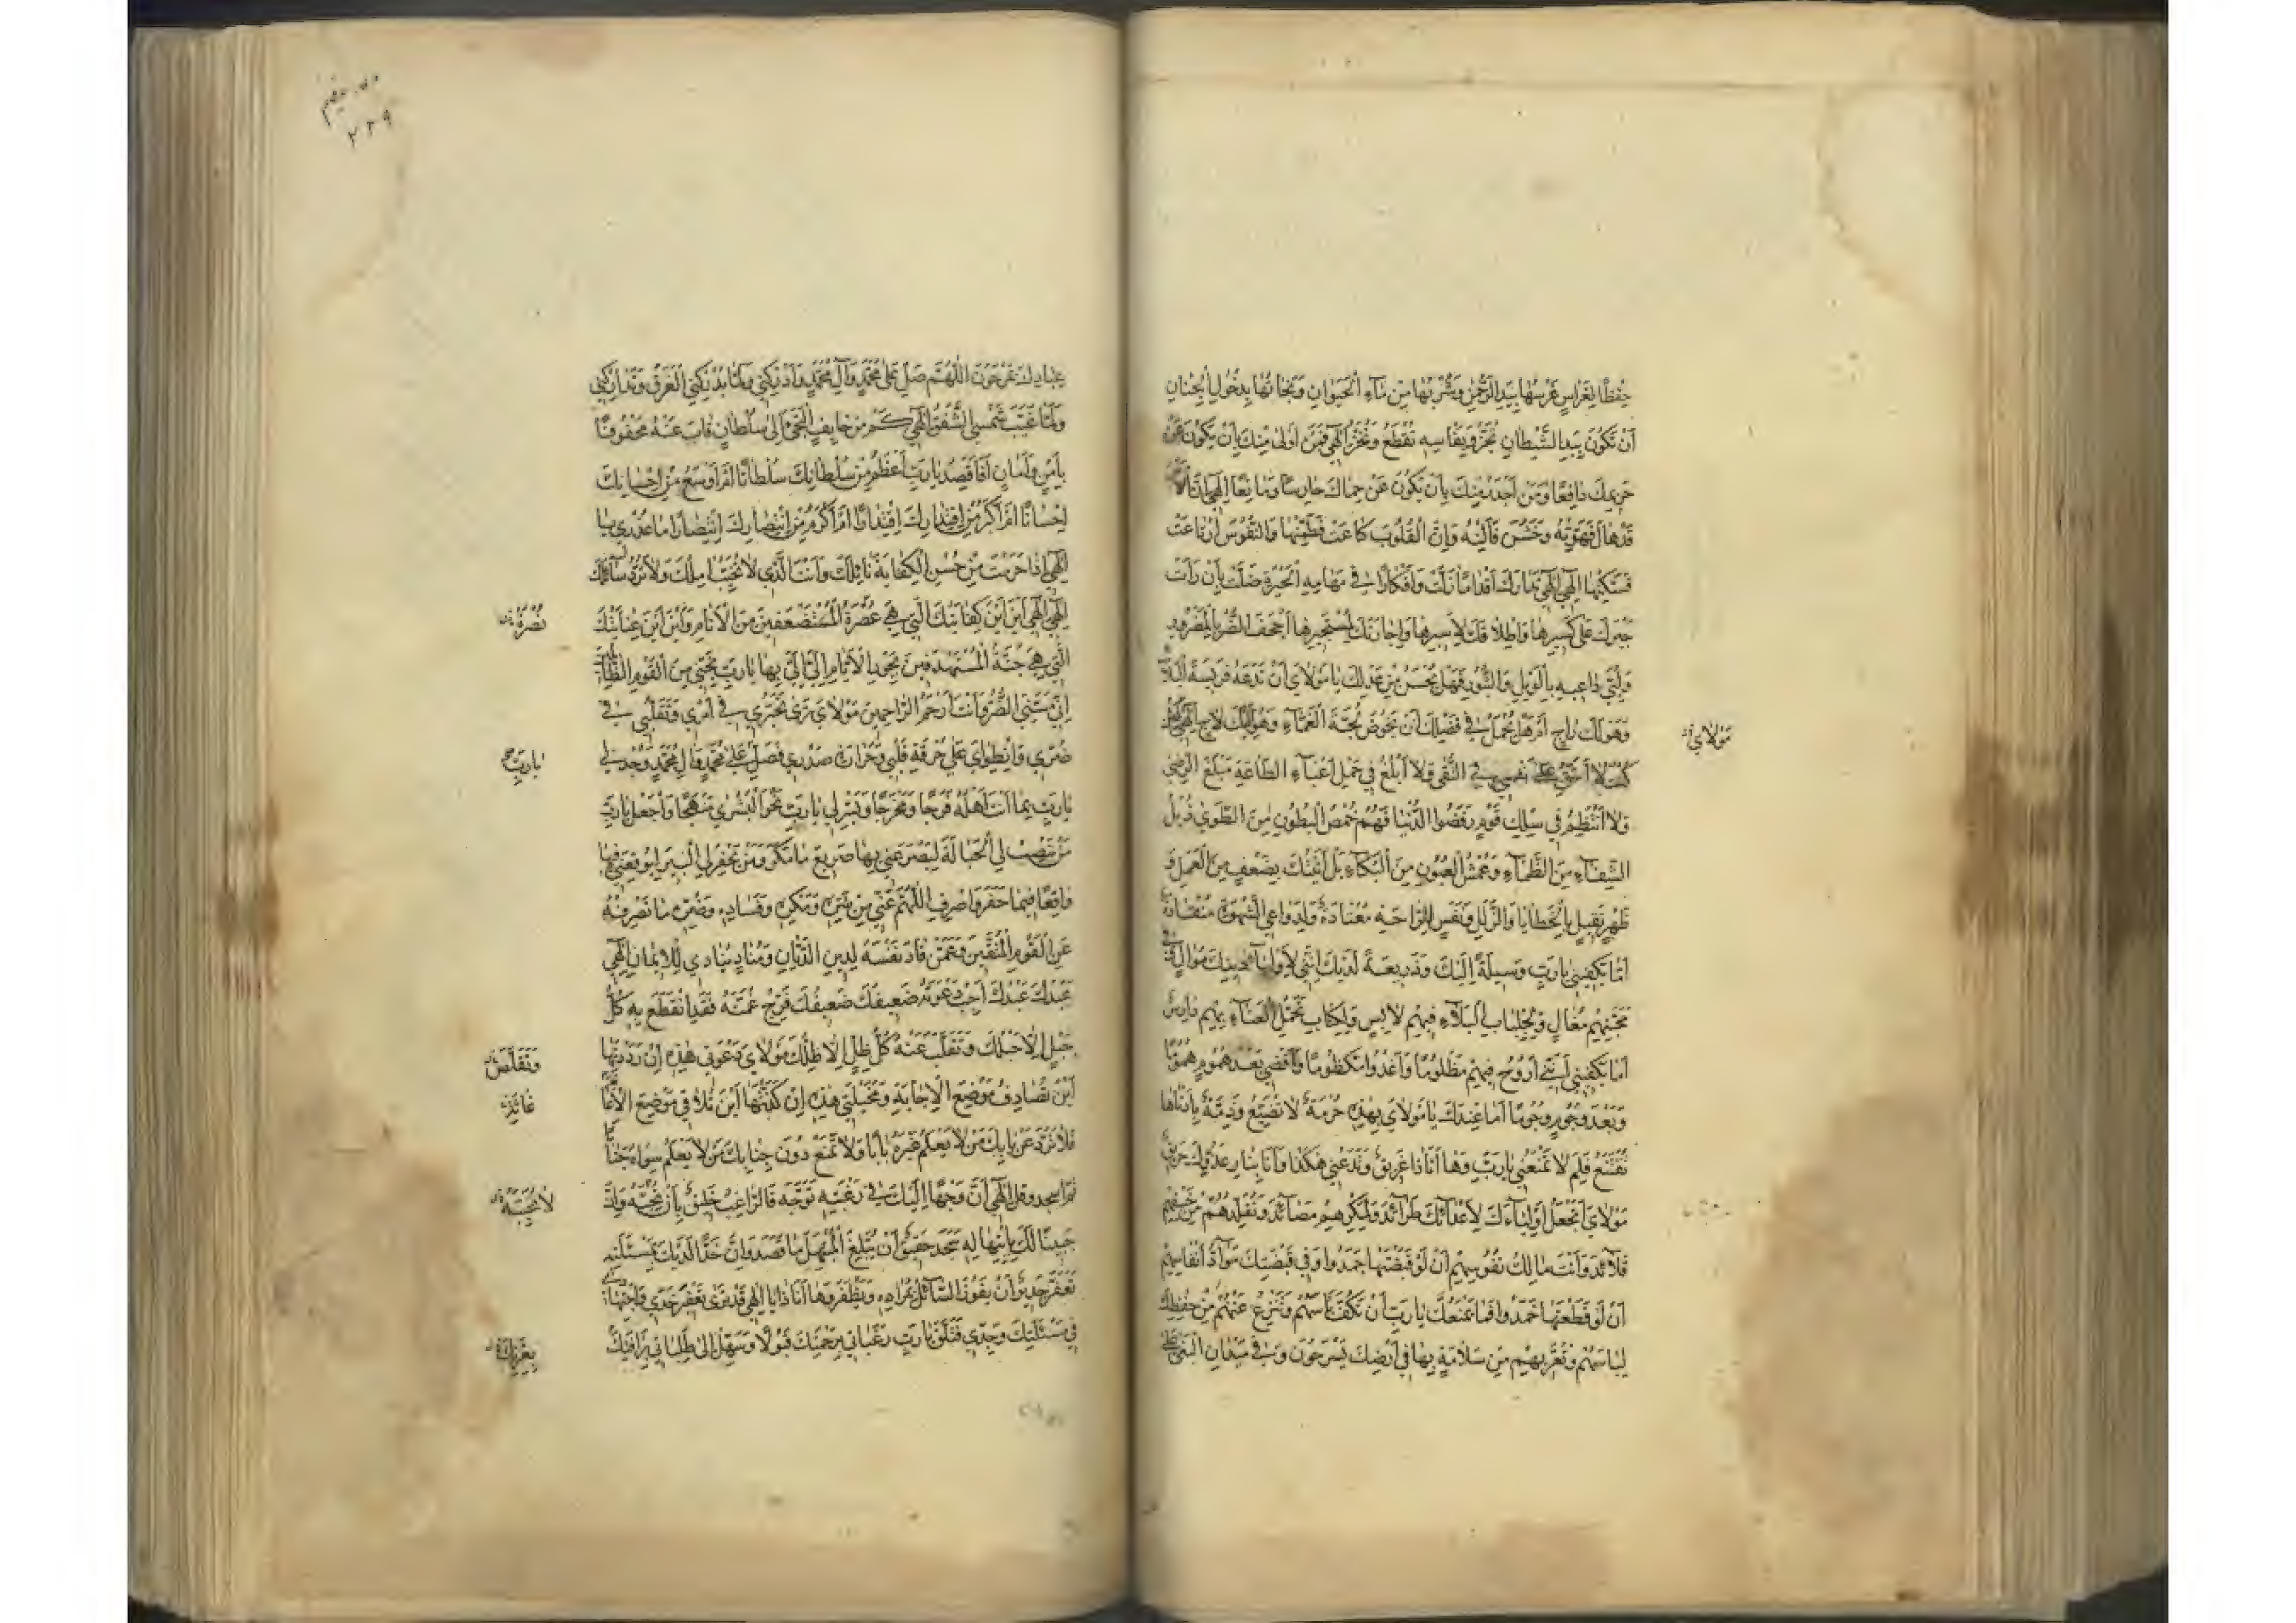 حِفظًا لِغَراسٍ غَرَسْتَها بِيَدِ الرَّحْمٰنِ وَشُرْبُها مِنْ مَاءِ الْحَيَوانِ وَنَجاتُها بِدُخُولِ الْجِنانِ
أَنْ تَكُونَ بِيَدِ الشَّيْطانِ تُجَزُّ وَبِفَاسِهِ تُقْطَعُ وَتُخَزُّ إِلٰهي فَمَنْ أَوْلىٰ مِنْكَ بِأَنْ يَكُونَ عَنْ
حَرِيمِكَ دَافِعًا وَمَنْ أَجْدَرُ مِنْكَ بِأَنْ يَكُونَ عَنْ حِماكَ حارِسًا وَمانِعًا إِلٰهي إِنَّ الْأَمْرَ
قَدْ هالَ فَهَوِّنْهُ وَخَشُنَ فَأَلِنْهُ وَإِنَّ الْقُلُوبَ كاعَتْ فَطَمِّنْها وَالنُّفُوسَ ارْتاعَتْ
فَسَكِّنْها إِلٰهي إِلٰهي تَدارَكْ أَقْدامًا زَلَّتْ وَأَفْكارًا في مَهامِهِ الْحَيْرَةِ ضَلَّتْ بِأَنْ رَأَتْ
جَبْرَكَ عَلىٰ كَسِيرِها وَإِطْلاقَكَ لِأَسِيرِها وَإِجارَتَكَ لِمُسْتَجِيرِها أَجْحَفَ الضُّرُّ بِالْمَضْرُورِ
وَلَبّىٰ داعِيهِ بِالْوَيْلِ وَالثُّبُورِ فَهَلْ يَحْسُنُ مِنْ عَدْلِكَ يا مَوْلايَ أَنْ تَدَعَهُ فَرِيسَةَ الْبَلاءِ
وَهُوَ لَكَ راجٍ أَمْ هَلْ يُحْمَلُ في فَضْلِكَ أَنْ يَخُوضَ لُجَّةَ الْغَمّاءِ وَهُوَ إِلَيْكَ لاجٍ إِلٰهي لَئِنْ
مَوْلايَ
كُنْتُ لا أَشُقُّ عَلىٰ نَفْسِي فِي التُّقىٰ وَلا أَبْلُغُ في حَمْلِ أَعْباءِ الطّاعَةِ مَبْلَغَ الرِّضىٰ
وَلا أَنْتَظِمُ في سِلْكِ قَوْمٍ رَفَضُوا الدُّنْيا فَهُمْ خُمُصُ الْبُطُونِ مِنَ الطَّوىٰ ذُبُلُ
الشِّفاهِ مِنَ الظَّماءِ وَعُمْشُ الْعُيُونِ مِنَ الْبُكاءِ بَلْ أَتَيْتُكَ بِضَعْفٍ مِنَ الْعَمَلِ وَ
ظَهْرٍ ثَقِيلٍ بِالْخَطايا وَالزَّلَلِ وَنَفْسٍ لِلرّاحَةِ مُعْتادَةٍ وَلِدَواعِي الشَّهْوَةِ مُنْقادَةٍ
أَما يَكْفِيني يا رَبِّ وَسِيلَةً إِلَيْكَ وَذَرِيعَةً لَدَيْكَ إِنَّني لِأَوْلِياءِ دِينِكَ مُوالٍ وَفي
مَحَبَّتِهِمْ مُغالٍ وَلِجِلْبابِ الْبَلاءِ فِيهِمْ لابِسٌ وَلِكِتابِ تَحَمُّلِ الْعَناءِ بِهِمْ دارِسٌ
أَما يَكْفِيني أَنْ أَرُوحَ فِيهِمْ مَظْلُومًا وَأَغْدُوَ مَكْظُومًا وَأَقْضِيَ بَعْدَ هُمُومٍ هُمُومًا
وَبَعْدَ وُجُومٍ وُجُومًا أَما عِنْدَكَ يا مَوْلايَ بِهٰذِهِ حُرْمَةٌ لا تُضَيَّعُ وَذِمَّةٌ بِأَدْناها
تُقْتَنَعُ فَلِمَ لا تَمْنَعُني يا رَبِّ وَها أَنا ذا غَرِيقٌ وَتَدَعُني هٰكَذا وَأَنا بِنارِ عَدُوِّكَ حَرِيقٌ
مَوْلايَ أَتَجْعَلُ أَوْلِياءَكَ لِأَعْدائِكَ طَرائِدَ وَلِمَكْرِهِمْ مَصائِدَ وَتُقَلِّدُهُمْ مِنْ خَسْفِهِمْ
قَلائِدَ وَأَنْتَ مالِكُ نُفُوسِهِمْ أَنْ لَوْ قَبَضْتَها جَمَدُوا وَفي قَبْضَتِكَ مَوادُّ أَنْفاسِهِمْ
أَنْ لَوْ قَطَعْتَها خَمَدُوا فَما يَمْنَعُكَ يا رَبِّ أَنْ تَكُفَّ بَأْسَهُمْ وَتَنْزِعَ عَنْهُمْ مِنْ حِفْظِكَ
لِباسَهُمْ وَتُعَرِّيَهُمْ مِنْ سَلامَةٍ بِها في أَرْضِكَ يَسْرَحُونَ وَفي مَيْدانِ الْبَغْيِ عَلىٰ
٢٢٩
عِبادِكَ يَمْرَحُونَ اللّٰهُمَّ صَلِّ عَلىٰ مُحَمَّدٍ وَآلِ مُحَمَّدٍ وَأَدْرِكْني وَلَمّا يُدْرِكْنِي الْغَرَقُ وَتَدارَكْني
وَلَمّا غَيَّبَ شَمْسِي الشَّفَقُ إِلٰهي كَمْ مِنْ خائِفٍ الْتَجَأَ إِلىٰ سُلْطانٍ فَآبَ عَنْهُ مَحْفُوفًا
بِأَمْنٍ وَأَمانٍ أَفَأَقْصِدُ يا رَبِّ أَعْظَمَ مِنْ سُلْطانِكَ سُلْطانًا أَمْ أَوْسَعَ مِنْ إِحْسانِكَ
إِحْسانًا أَمْ أَكْثَرَ مِنِ اقْتِدارِكَ اقْتِدارًا أَمْ أَكْرَمَ مِنِ انْتِصارِكَ انْتِصارًا ما عُذْري يا
إِلٰهي إِذا حَرَمْتَ مِنْ حُسْنِ الْكِفايَةِ نائِلَكَ وَأَنْتَ الَّذي لا يُخَيَّبُ آمِلُكَ وَلا يُرَدُّ سائِلُكَ
إِلٰهي إِلٰهي أَيْنَ أَيْنَ كِفايَتُكَ الَّتي هِيَ عُصْرَةُ الْمُسْتَضْعَفِينَ مِنَ الْأَنامِ وَأَيْنَ أَيْنَ عِنايَتُكَ
نُصْرَةُ
الَّتي هِيَ جُنَّةُ الْمُسْتَهْدَفِينَ بِجَوْرِ الْأَيّامِ إِلَيَّ إِلَيَّ بِها يا رَبِّ نَجِّني مِنَ الْقَوْمِ الظّالِمِينَ
إِنِّي مَسَّنِيَ الضُّرُّ وَأَنْتَ أَرْحَمُ الرّاحِمِينَ مَوْلايَ تَرىٰ تَحَيُّري في أَمْري وَتَقَلُّبي في
ضُرّي وَانْطِوايَ عَلىٰ حُرْقَةِ قَلْبي وَحَرارَةِ صَدْري فَصَلِّ عَلىٰ مُحَمَّدٍ وَآلِ مُحَمَّدٍ وَجُدْ لي
يا رَبِّ
يا رَبِّ بِما أَنْتَ أَهْلُهُ فَرَجًا وَمَخْرَجًا وَيَسِّرْ لي يا رَبِّ نَحْوَ الْبُشْرىٰ مَنْهَجًا وَاجْعَلْ يا رَبِّ
مَنْ نَصَبَ لِيَ الْحِبالَةَ لِيَصْرَعَني بِها صَرِيعَ ما مَكَرَ وَمَنْ حَفَرَ لِيَ الْبِئْرَ لِيُوقِعَني فِيها
واقِعًا فِيما حَفَرَ وَاصْرِفِ اللّٰهُمَّ عَنّي مِنْ شَرِّهِ وَمَكْرِهِ وَفَسادِهِ وَضُرِّهِ ما تَصْرِفُهُ
عَنِ الْقَوْمِ الْمُتَّقِينَ وَعَمَّنْ قادَ نَفْسَهُ لِدِينِ الدَّيّانِ وَمُنادٍ يُنادي لِلْإِيمانِ إِلٰهي
عَبْدُكَ عَبْدُكَ أَجِبْ دَعْوَتَهُ ضَعِيفُكَ ضَعِيفُكَ فَرِّجْ غُمَّتَهُ فَقَدِ انْقَطَعَ بِهِ كُلُّ
حَبْلٍ إِلّا حَبْلُكَ وَتَقَلَّبَ عَنْهُ كُلُّ ظِلٍّ إِلّا ظِلُّكَ مَوْلايَ دَعْوَتي هٰذِهِ إِنْ رَدَدْتَها
وَتَقَلَّصَ
أَيْنَ تُصادِفُ مَوْضِعَ الْإِجابَةِ وَمَخِيلَتي هٰذِهِ إِنْ كَذَّبْتَها أَيْنَ تُلاقي مَوْضِعَ الْإِغاثَةِ
فَلا تَرُدَّ عَنْ بابِكَ مَنْ لا يَعْلَمُ غَيْرَهُ بابًا وَلا تَمْنَعْ دُونَ جِنابِكَ مَنْ لا يَعْلَمُ سِواهُ جَنابًا
ثُمَّ اسجد وقل إِلٰهي إِنَّ وَجْهًا إِلَيْكَ في رَغْبَتِهِ تَوَجَّهَ فَالرّاغِبُ خَلِيقٌ بِأَنْ تُجِيبَهُ وَإِنَّ
جَبِينًا لَكَ بِابْتِهالِهِ سَجَدَ حَقِيقٌ أَنْ يَبْلُغَ الْمُبْتَهِلُ ما قَصَدَ وَإِنَّ خَدًّا لَدَيْكَ بِمَسْئَلَتِهِ
تَعَفَّرَ جَدِيرٌ أَنْ يَفُوزَ السّائِلُ بِمُرادِهِ وَيَظْفَرَ وَها أَنا ذا يا إِلٰهي قَدْ تَرىٰ تَعَفُّرَ خَدّي وَاجْتِهادي
في مَسْئَلَتِكَ وَجِدّي فَتَلَقَّ يا رَبِّ رَغَباتي بِرَحْمَتِكَ قَبُولًا وَسَهِّلْ إِلىٰ طَلِباتي بِرَأْفَتِكَ
بِعِزَّتِكَ